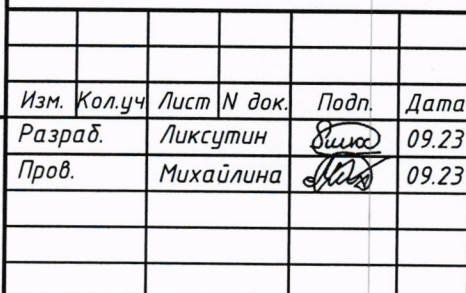 Изм. Кол.уч Лист N док. Подп. Дата
Разраб. Ликсутин 09.23
Пров. Михайлина 09.23